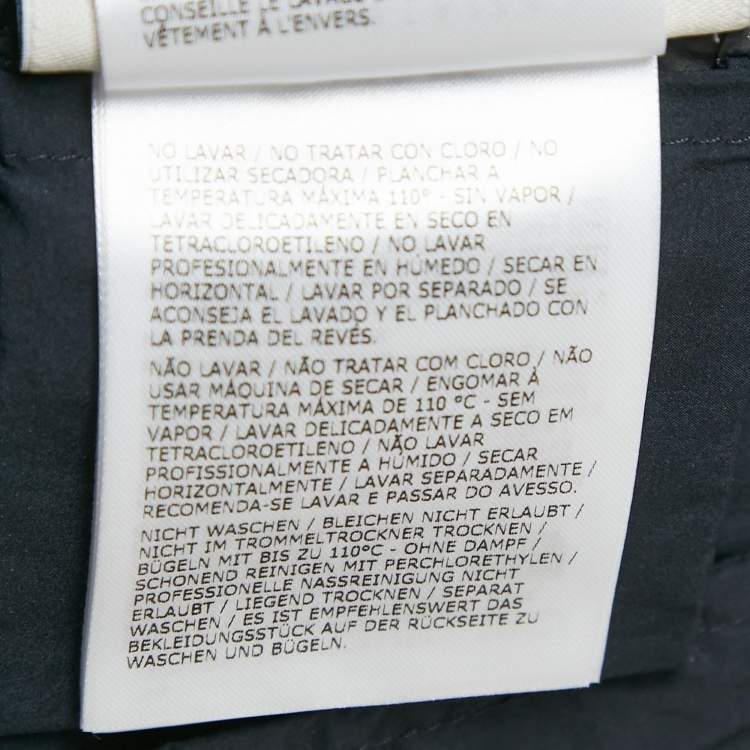 CONSEILLE LE LAVAGE
VÊTEMENT À L'ENVERS.
NO LAVAR / NO TRATAR CON CLORO / NO
UTILIZAR SECADORA / PLANCHAR A
TEMPERATURA MÁXIMA 110° - SIN VAPOR /
LAVAR DELICADAMENTE EN SECO EN
TETRACLOROETILENO / NO LAVAR
PROFESIONALMENTE EN HÚMEDO / SECAR EN
HORIZONTAL / LAVAR POR SEPARADO / SE
ACONSEJA EL LAVADO Y EL PLANCHADO CON
LA PRENDA DEL REVÉS.
NÃO LAVAR / NÃO TRATAR COM CLORO / NÃO
USAR MÁQUINA DE SECAR / ENGOMAR À
TEMPERATURA MÁXIMA DE 110 °C - SEM
VAPOR / LAVAR DELICADAMENTE A SECO EM
TETRACLOROETILENO / NÃO LAVAR
PROFISSIONALMENTE A HÚMIDO / SECAR
HORIZONTALMENTE / LAVAR SEPARADAMENTE /
RECOMENDA-SE LAVAR E PASSAR DO AVESSO.
NICHT WASCHEN / BLEICHEN NICHT ERLAUBT /
NICHT IM TROMMELTROCKNER TROCKNEN /
BÜGELN MIT BIS ZU 110°C - OHNE DAMPF /
SCHONEND REINIGEN MIT PERCHLORETHYLEN /
PROFESSIONELLE NASSREINIGUNG NICHT
ERLAUBT / LIEGEND TROCKNEN / SEPARAT
WASCHEN / ES IST EMPFEHLENSWERT DAS
BEKLEIDUNGSSTÜCK AUF DER RÜCKSEITE ZU
WASCHEN UND BÜGELN.